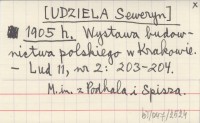 x
[UDZIELA Seweryn]
1905 h. Wystawa budow-
nictwa polskiego w Krakowie.
- Lud 11, nr 2: 203-204.
M.in. z Podhala i Spisza.